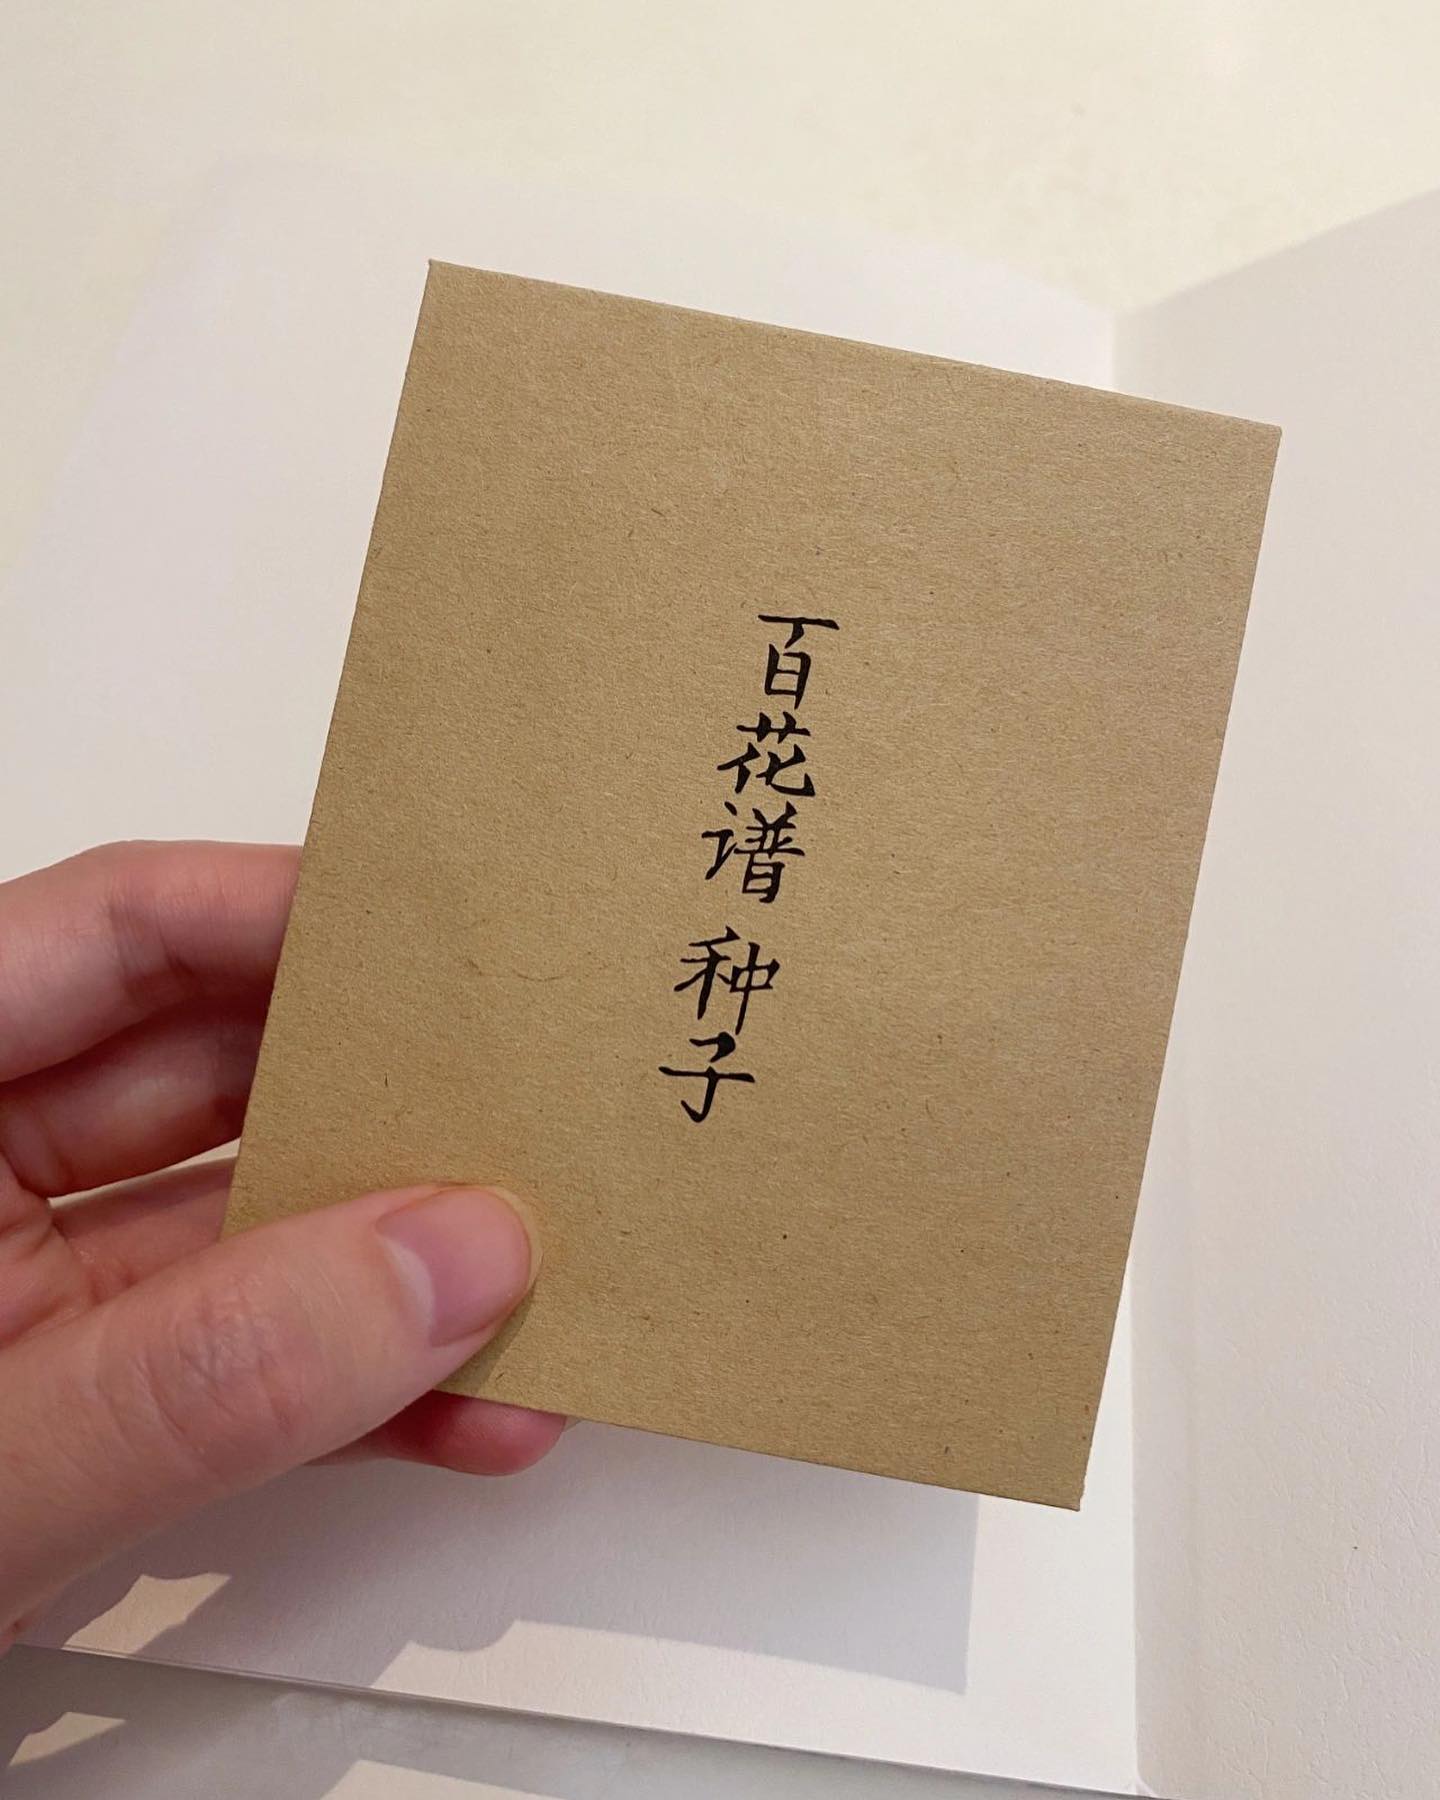 百花谱 种子